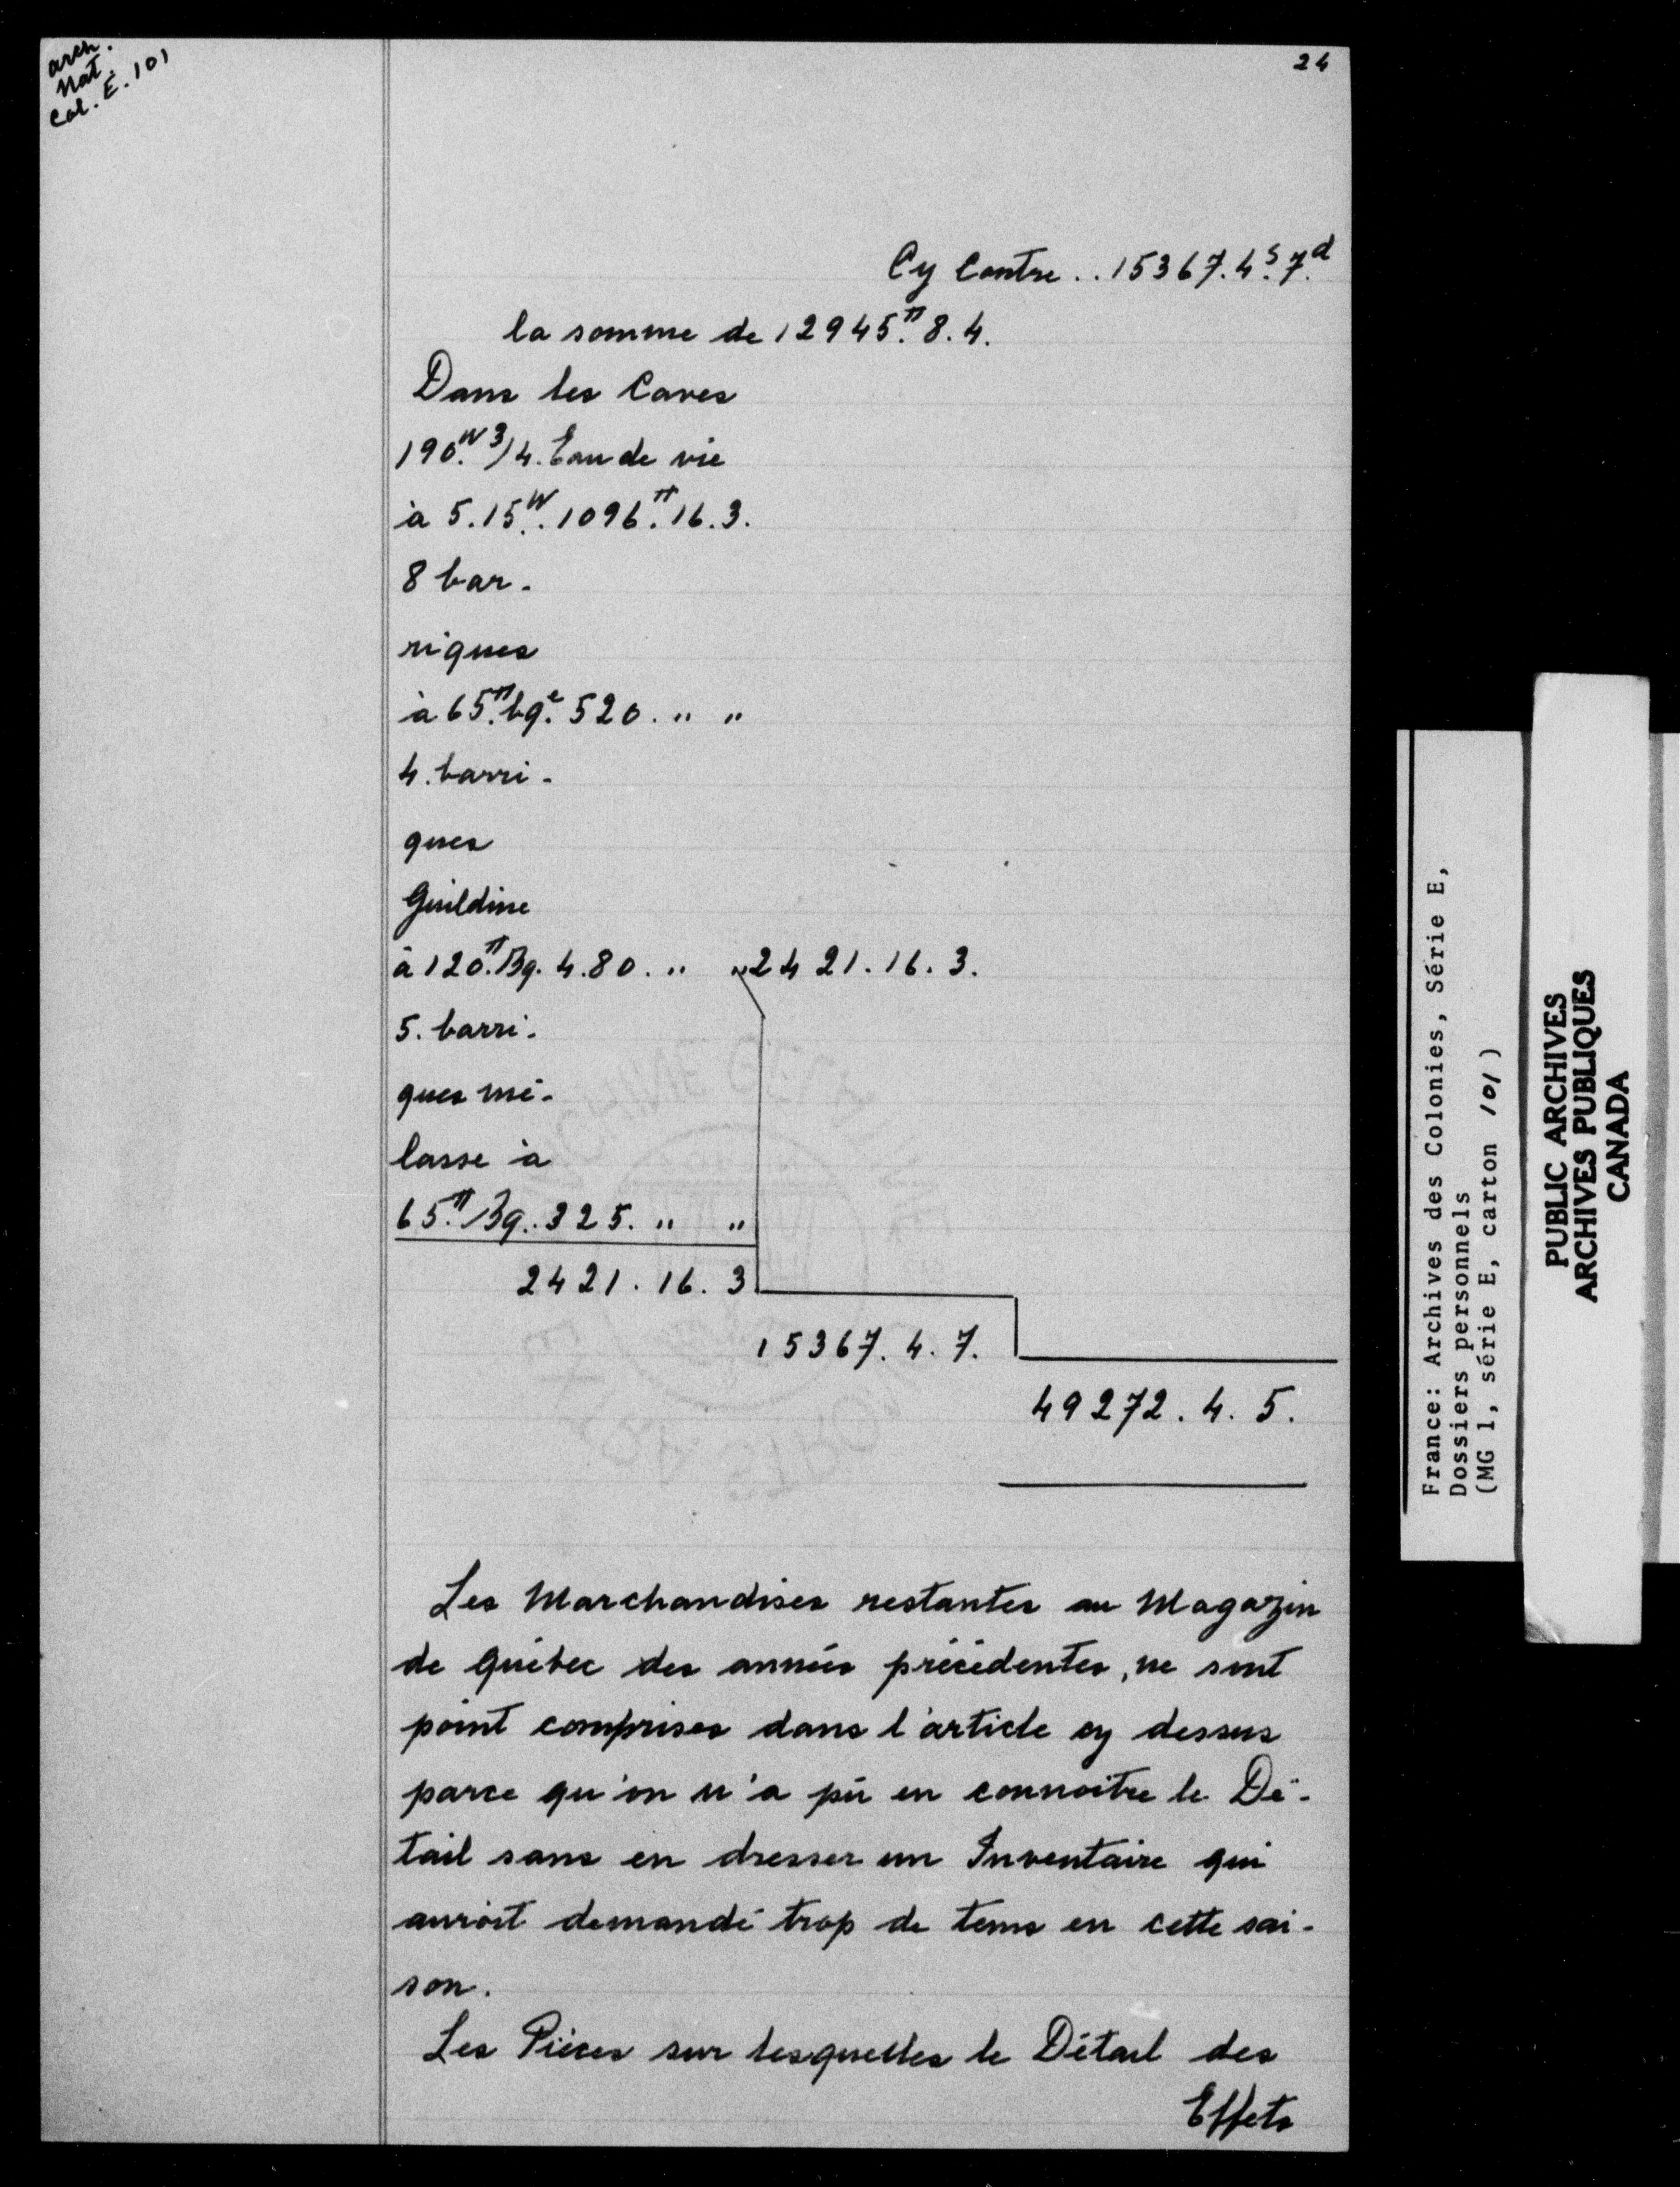 arch.
Nat.
Col. E. 101
24
Cy Contre .. 15367. 4s. 7d.
la somme de 12945.tt 8. 4.
Dans les Caves
190.W 3/4. Eau de vie
à 5.15W. . 1096.tt 16. 3.
8 bar-
riques
à 65.tt bq.e 520. " "
4. barri-
ques
Guildine
à 120.tt Bq. 4.80. " " 2421. 16. 3.
5. barri-
ques mé-
lasse à
65.tt Bq. 325. " "
2421. 16. 3
15367. 4. 7.
49272. 4. 5.
Les Marchandises restantes au Magazin
de Québec des années précédentes, ne sont
point comprises dans l'article cy dessus
parce qu'on n'a pû en connoitre le Dé-
tail sans en dresser un Inventaire qui
auroit demandé trop de tems en cette sai-
son.
Les Pièces sur lesquelles le Détail des
Effets
France: Archives des Colonies, Série E,
Dossiers personnels
(MG 1, série E, carton 101)
PUBLIC ARCHIVES
ARCHIVES PUBLIQUES
CANADA